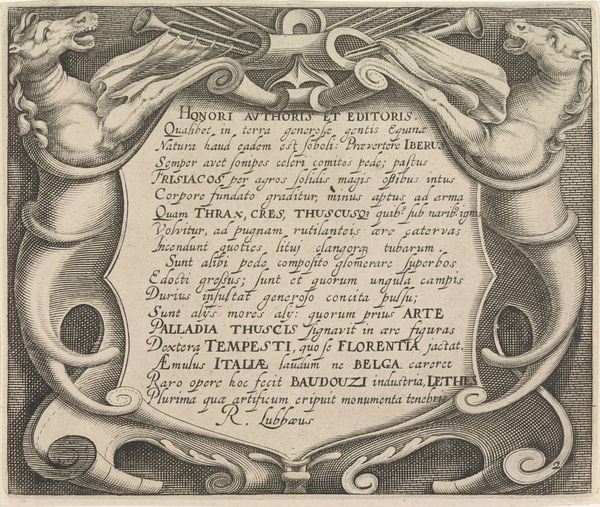 HONORI AVTHORIS ET EDITORIS.
Qualibet in terra generosæ gentis Equinæ
Natura haud eadem est soboli: Prævertere IBERUS
Semper avet sonipes celeri comites pede; pastus
FRISIACOS per agros solidis magis ossibus intus
Corpore fundato graditur, minus aptus ad arma
Quam THRAX, CRES, THUSCUSQ; quib9 sub narib9 ignis
Volvitur, ad pugnam rutilanteis ære catervas
Incendunt quoties litui clangorq; tubarum.
Sunt alibi pede composito glomerare superbos
Edocti gressus; sunt et quorum ungula campis
Durius insultat generoso concita pulsu;
Sunt alijs mores alij: quorum prius ARTE
PALLADIA THUSCIS signavit in ære figuras
Dextera TEMPESTI, quo se FLORENTIA jactat.
Æmulus ITALIÆ laudum ne BELGA careret
Raro opere hoc fecit BAUDOUZI industria, LETHES
Plurima quæ artificum eripuit monumenta tenebris
R. Lubbæus
2